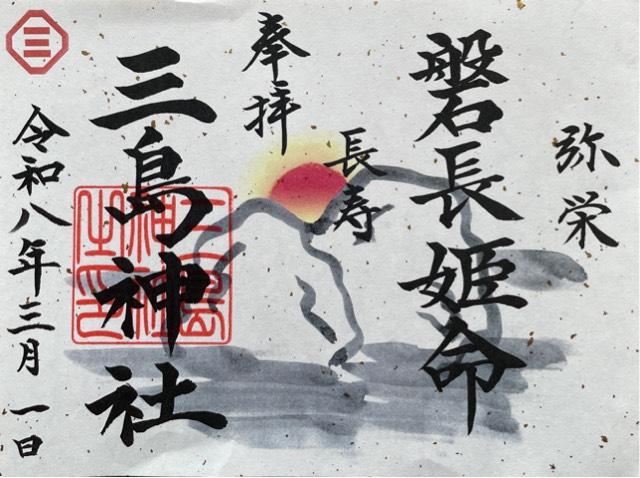 弥栄
磐長姫命
長寿
奉拝
三島神社
令和八年三月一日
三
三島神社之印